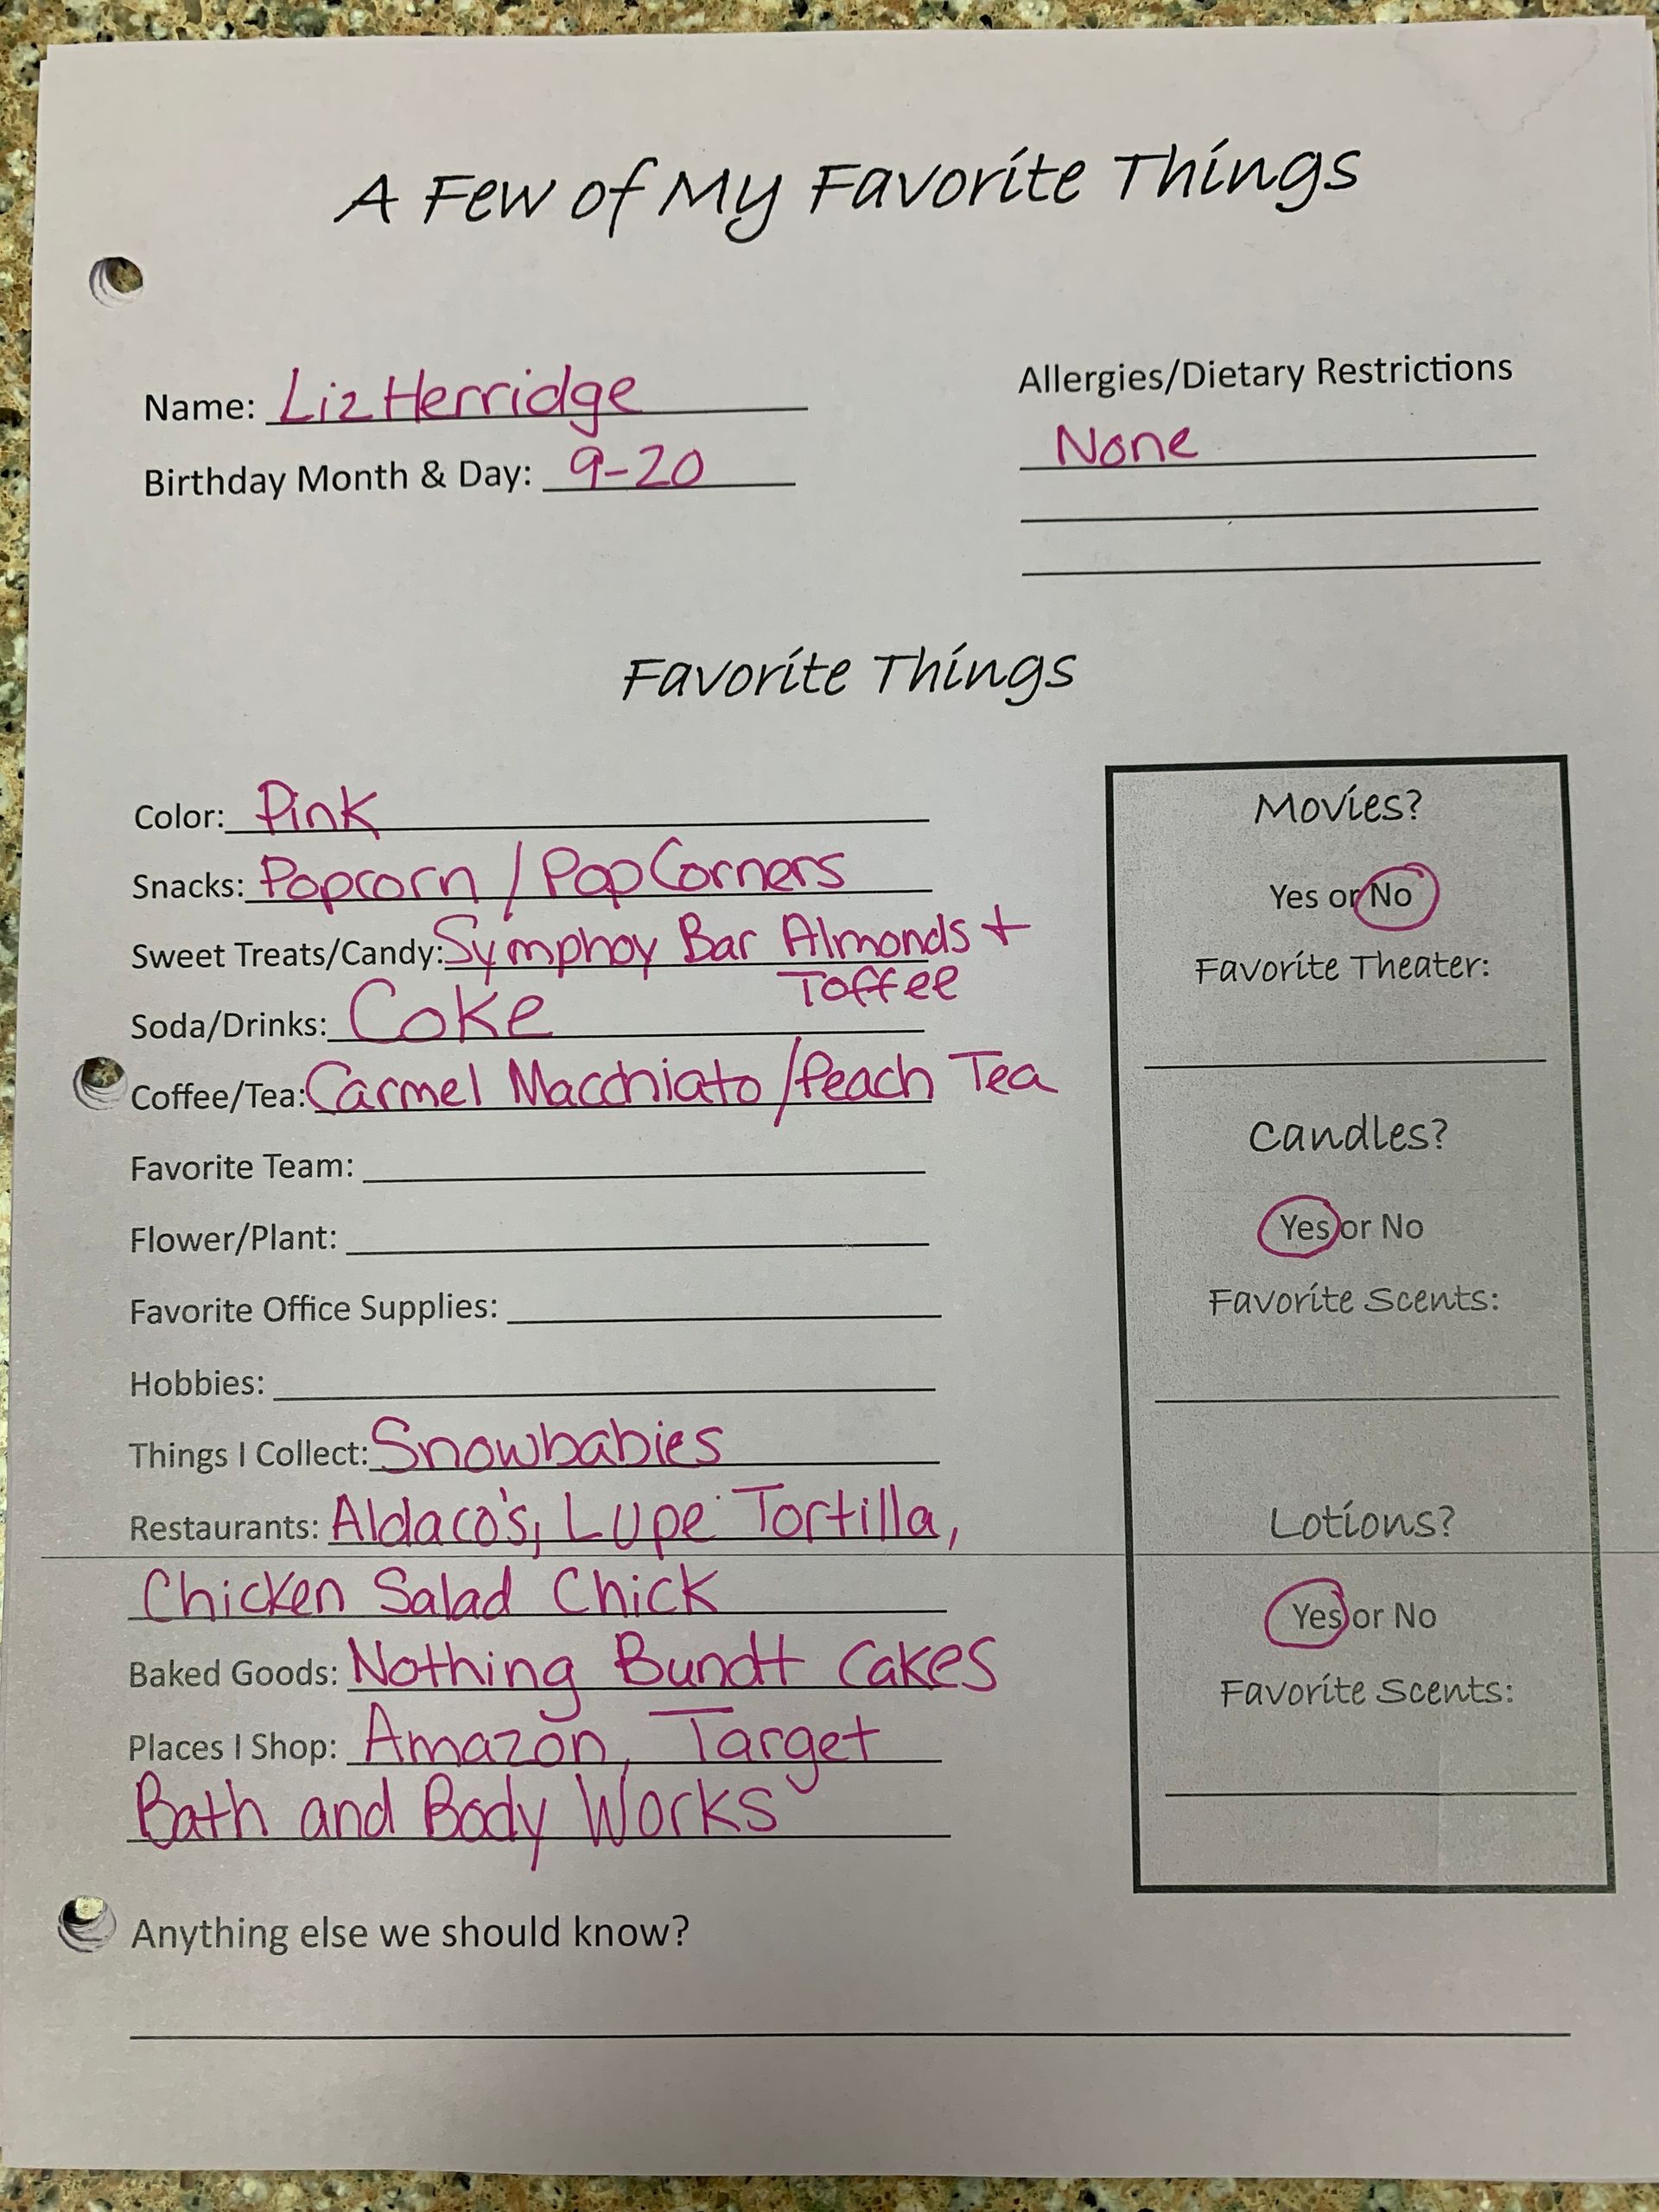 A Few of My Favorite Things
Name: Liz Herridge
Birthday Month & Day: 9-20
Allergies/Dietary Restrictions
None
Favorite Things
Color: Pink
Snacks: Popcorn / PopCorners
Sweet Treats/Candy: Symphoy Bar Almonds +
Toffee
Soda/Drinks: Coke
Coffee/Tea: Carmel Macchiato / Peach Tea
Favorite Team:
Flower/Plant:
Favorite Office Supplies:
Hobbies:
Things I Collect: Snowbabies
Restaurants: Aldaco's, Lupe Tortilla,
Chicken Salad Chick
Baked Goods: Nothing Bundt Cakes
Places I Shop: Amazon, Target
Bath and Body Works
Movies?
Yes or No
Favorite Theater:
Candles?
Yes or No
Favorite Scents:
Lotions?
Yes or No
Favorite Scents:
Anything else we should know?